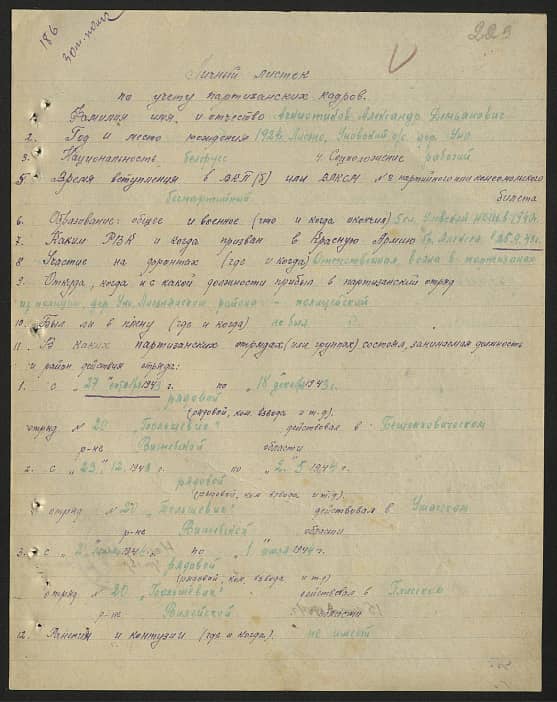 186
223
Личный листок
по учету партизанских кадров.
1. Фамилия имя и отчество Александр Демьянович
2. Год и место рождения 1924 с/с дер. Уно
3. Национальность белорус 4. Соцположение рабочий
5. Время вступления в ВКП(б) или ВЛКСМ № партийного или комсомольского
беспартийный билета
6. Образование: общее и военное (что и когда окончил) 5 кл.
7. Каким РВК и когда призван в Красную Армию
8. Участие на фронтах (где и когда) Отечественная война в партизанах
9. Откуда, когда и с какой должности прибыл в партизанский отряд
из полиции, дер. Уно, района - полицейский
10. Был ли в плену (где и когда) не был
11. В каких партизанских отрядах (или группах) состоял, занимаемая должность
и район действия отряда:
1. С "27" 1943 г. по "18" декабря 1943 г.
рядовой
(рядовой, ком. взвода и т.д.)
отряд № 20 "Большевик" действовал в Бешенковическом
р-не Витебской области
2. с "23" 12. 1943 по "2" 5 1944 г.
рядовой
(рядовой, ком. взвода и т.д.)
отряд № 20 "Большевик" действовал в Ушачском
р-не Витебской области
3. с "2" по "1" июля 1944 г.
рядовой
(рядовой, ком. взвода и т.д.)
отряд № 20 "Большевик" действовал в Плисском
р-не Вилейской области
12. Ранения и контузии (где и когда) не имеет